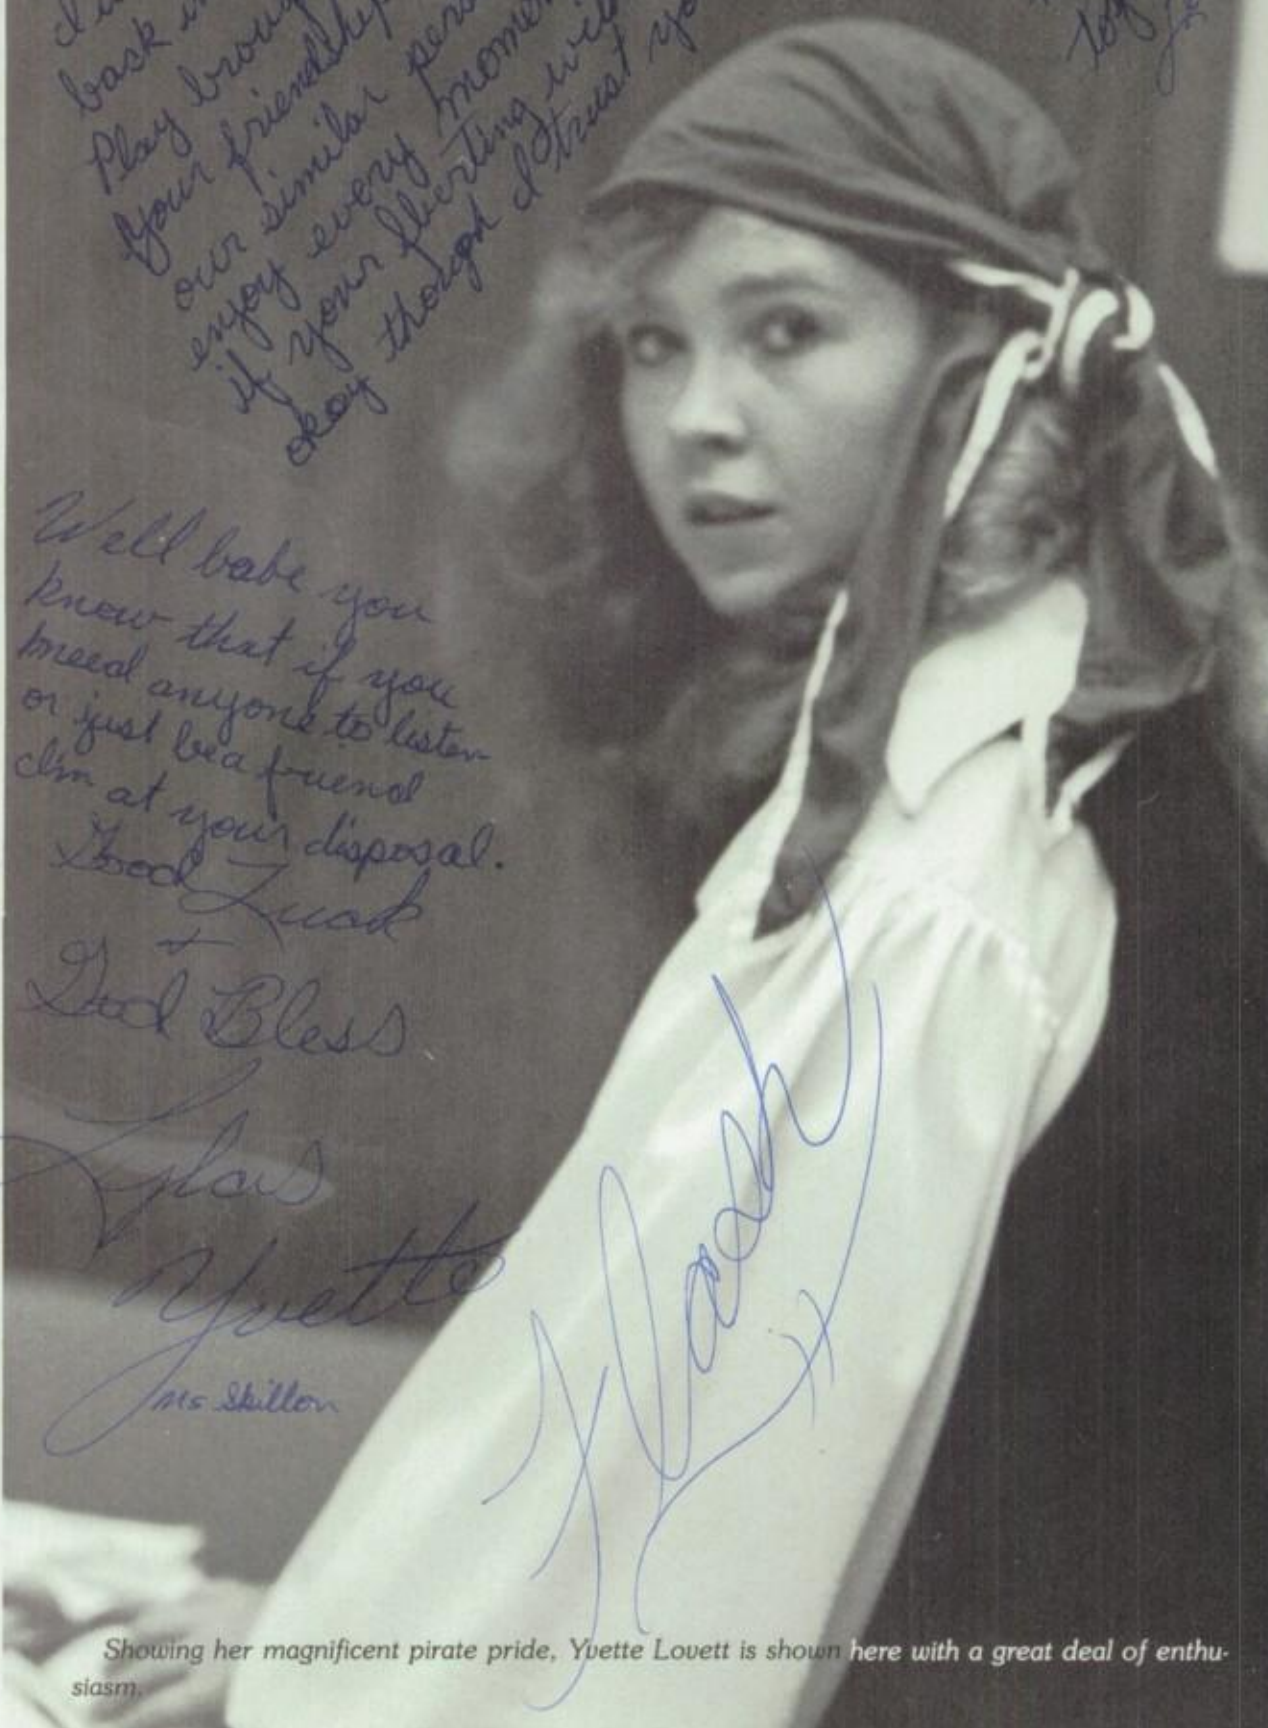 back in
Play brough
Your friendship
our similar pers
enjoy every momen
if your flberting wild
okay though I trust yo
Well babe you
know that if you
need anyone to listen
or just be a friend
I'm at your disposal.
Good Luck
+
God Bless
Lylas
Yvette
Ms Skillon
Flash
Showing her magnificent pirate pride, Yvette Lovett is shown here with a great deal of enthu-
siasm.